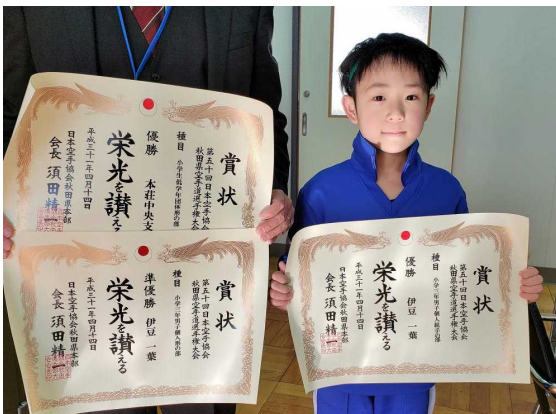 賞状
第五十回日本空手協会
秋田県空手道選手権大会
種目 小学生低学年団体形の部
優勝 本荘中央支
栄光を讃える
平成三十一年四月十四日
日本空手協会秋田県本部
会長 須田精一
賞状
第五十回日本空手協会
秋田県空手道選手権大会
種目 小学三年男子個人形の部
準優勝 伊豆 一葉
栄光を讃える
平成三十一年四月十四日
日本空手協会秋田県本部
会長 須田精一
賞状
第五十回日本空手協会
秋田県空手道選手権大会
種目 小学三年男子個人組手の部
優勝 伊豆 一葉
栄光を讃える
平成三十一年四月十四日
日本空手協会秋田県本部
会長 須田精一